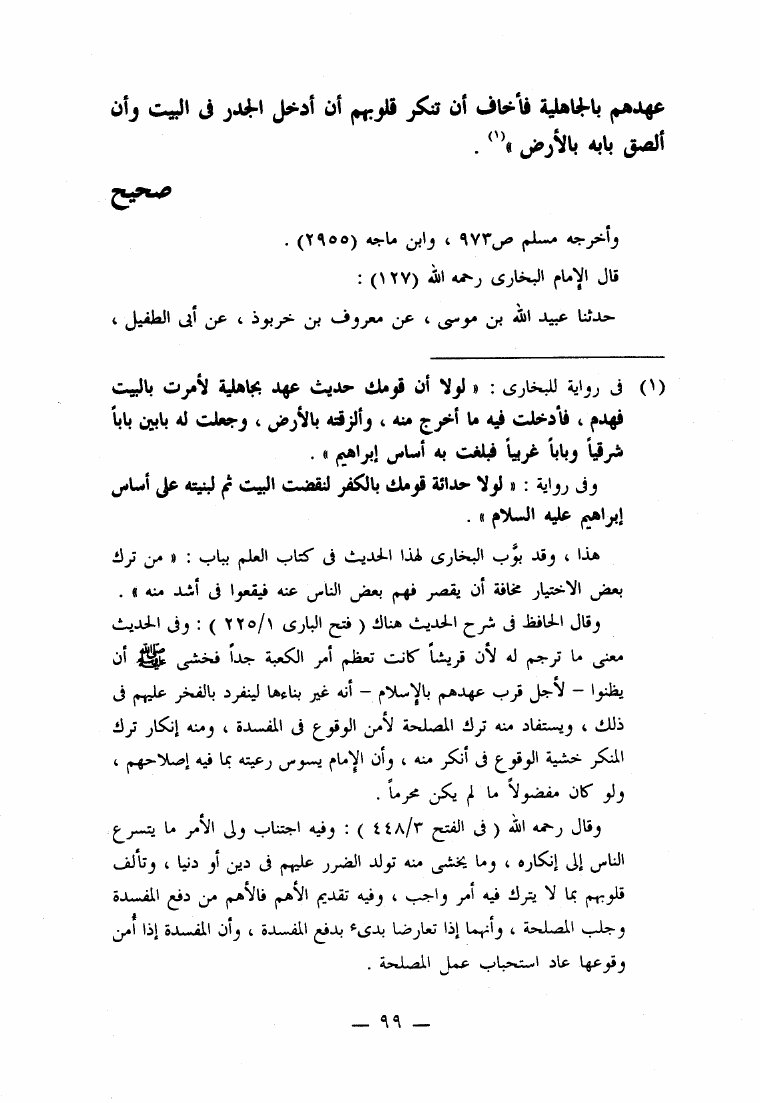 عهدهم بالجاهلية فأخاف أن تنكر قلوبهم أن أدخل الجدر فى البيت وأن
ألصق بابه بالأرض »(١) .
صحيح
وأخرجه مسلم ص٩٧٣ ، وابن ماجه (٢٩٥٥) .
قال الإمام البخارى رحمه الله (١٢٧) :
حدثنا عبيد الله بن موسى ، عن معروف بن خربوذ ، عن أبى الطفيل ،
(١) فى رواية للبخارى : « لولا أن قومك حديث عهد بجاهلية لأمرت بالبيت
فهدم ، فأدخلت فيه ما أخرج منه ، وألزقته بالأرض ، وجعلت له بابين باباً
شرقياً وباباً غربياً فبلغت به أساس إبراهيم » .
وفى رواية : « لولا حداثة قومك بالكفر لنقضت البيت ثم لبنيته على أساس
إبراهيم عليه السلام » .
هذا ، وقد بوَّب البخارى لهذا الحديث فى كتاب العلم بباب : « من ترك
بعض الاختيار مخافة أن يقصر فهم بعض الناس عنه فيقعوا فى أشد منه » .
وقال الحافظ فى شرح الحديث هناك ( فتح البارى ٢٢٥/١ ) : وفى الحديث
معنى ما ترجم له لأن قريشاً كانت تعظم أمر الكعبة جداً فخشى ﷺ أن
يظنوا – لأجل قرب عهدهم بالإسلام – أنه غير بناءها لينفرد بالفخر عليهم فى
ذلك ، ويستفاد منه ترك المصلحة لأمن الوقوع فى المفسدة ، ومنه إنكار ترك
المنكر خشية الوقوع فى أنكر منه ، وأن الإمام يسوس رعيته بما فيه إصلاحهم ،
ولو كان مفضولاً ما لم يكن محرماً .
وقال رحمه الله ( فى الفتح ٤٤٨/٣ ) : وفيه اجتناب ولى الأمر ما يتسرع
الناس إلى إنكاره ، وما يخشى منه تولد الضرر عليهم فى دين أو دنيا ، وتألف
قلوبهم بما لا يترك فيه أمر واجب ، وفيه تقديم الأهم فالأهم من دفع المفسدة
وجلب المصلحة ، وأنهما إذا تعارضا بدىء بدفع المفسدة ، وأن المفسدة إذا أُمن
وقوعها عاد استحباب عمل المصلحة .
— ٩٩ —